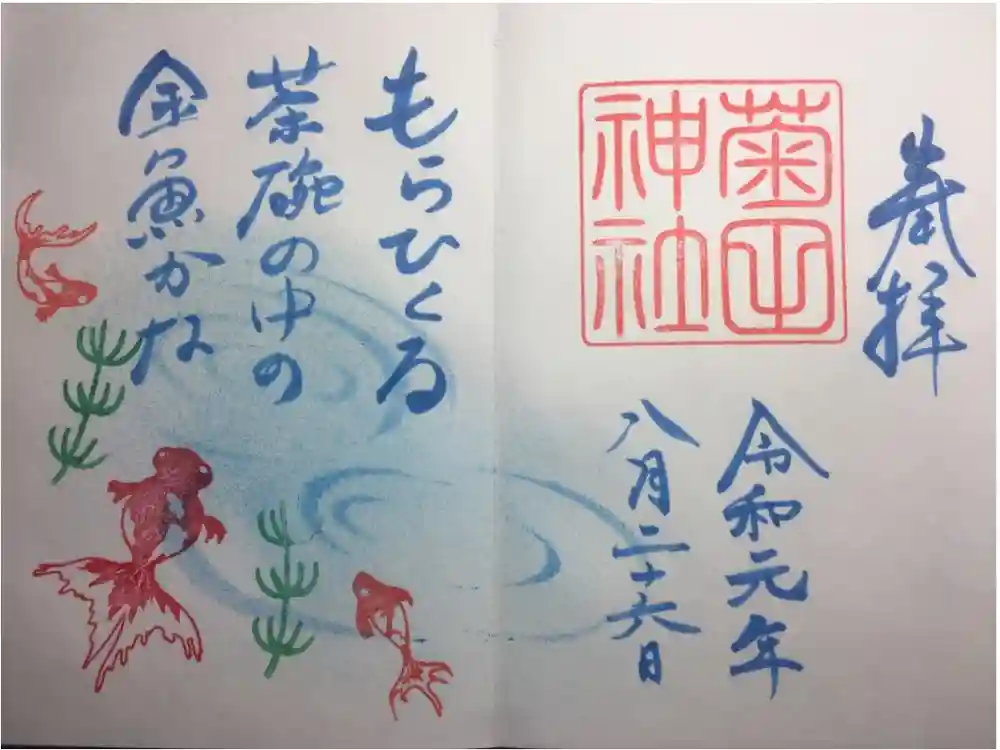 奉拝
菊田
神社
令和元年
八月二十六日
もらひくる
茶碗の中の
金魚かな